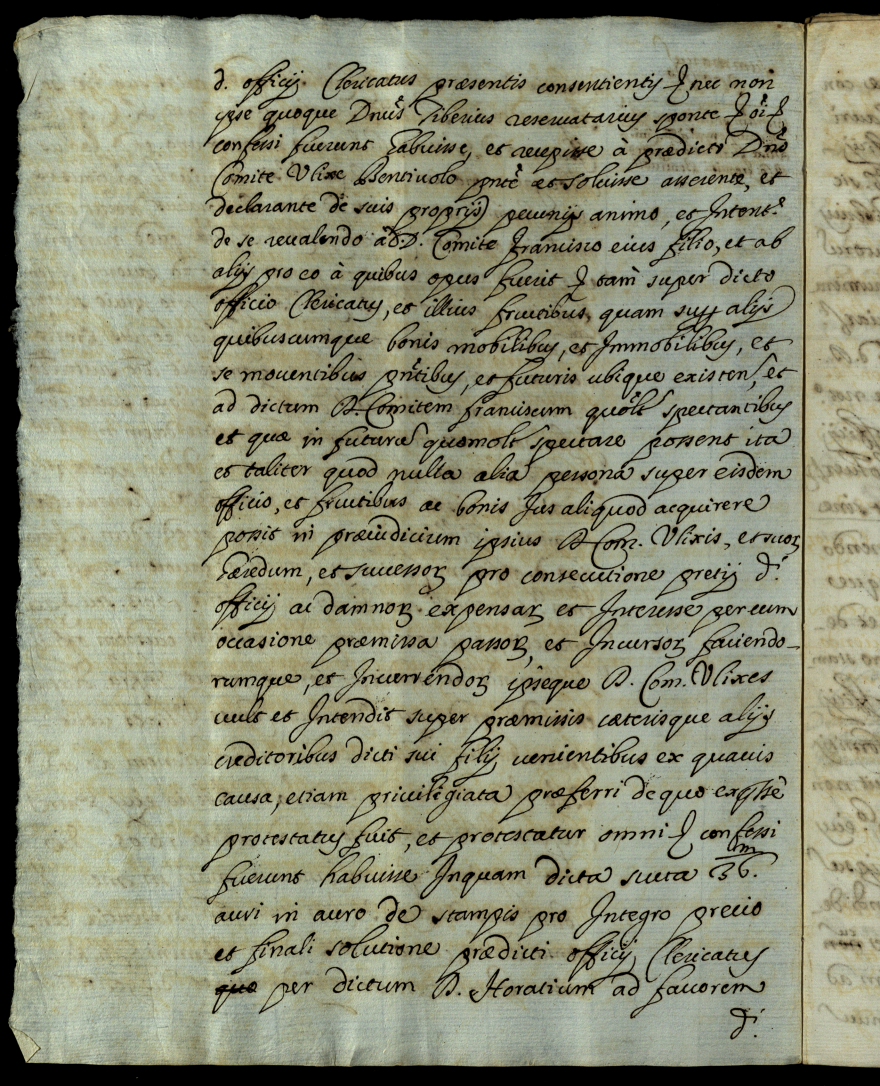 d. officij Clericatus præsentis consentientis et nec non
ipse quoque Dnus Tiberius reservatarius sponte
confessi fuerunt habuisse, et recepisse à prædicto Dno
Comite Vlixe Bentivolo pnte et soluisse asserente, et
declarante de suis proprijs pecunijs animo, et Intent.e
de se reualendo à D. Comite Francisco eius filio, et ab
alijs pro eo à quibus opus fuerit et tam super dicto
officio Clericatus, et illius fructibus, quam super alijs
quibuscumque bonis mobilibus, et Immobilibus, et
se mouentibus pntibus, et futuris ubique existen, et
ad dictum D. Comitem Franciscum quolt spectantibus
et quæ in futurũ quomolt spectare possent ita
et taliter quod nulla alia persona super eisdem
officio, et fructibus ac bonis Jus aliquod acquirere
possit in præiudicium ipsius D. Com. Vlixis, et suoꝝ
hæredum, et successoꝝ pro consecutione pretij d.i
officij ac damnoꝝ expensaꝝ et Interesse per eum
occasione præmissa passoꝝ, et Incursoꝝ faciendo-
rumque, et Incurrendoꝝ ipseque D. Com. Vlixes
uult et Intendit super præmissis cæterisque alijs
creditoribus dicti sui filij uenientibus ex quauis
causa, etiam priuilegiata præferri de quo expsse
protestatus fuit, et protestatur omni et confessi
fuerunt habuisse Inquam dicta scuta 36.m
auri in auro de stampis pro Integro precio
et finali solutione prædicti officij Clericatus
per dictum D. Horatium ad fauorem
d.i